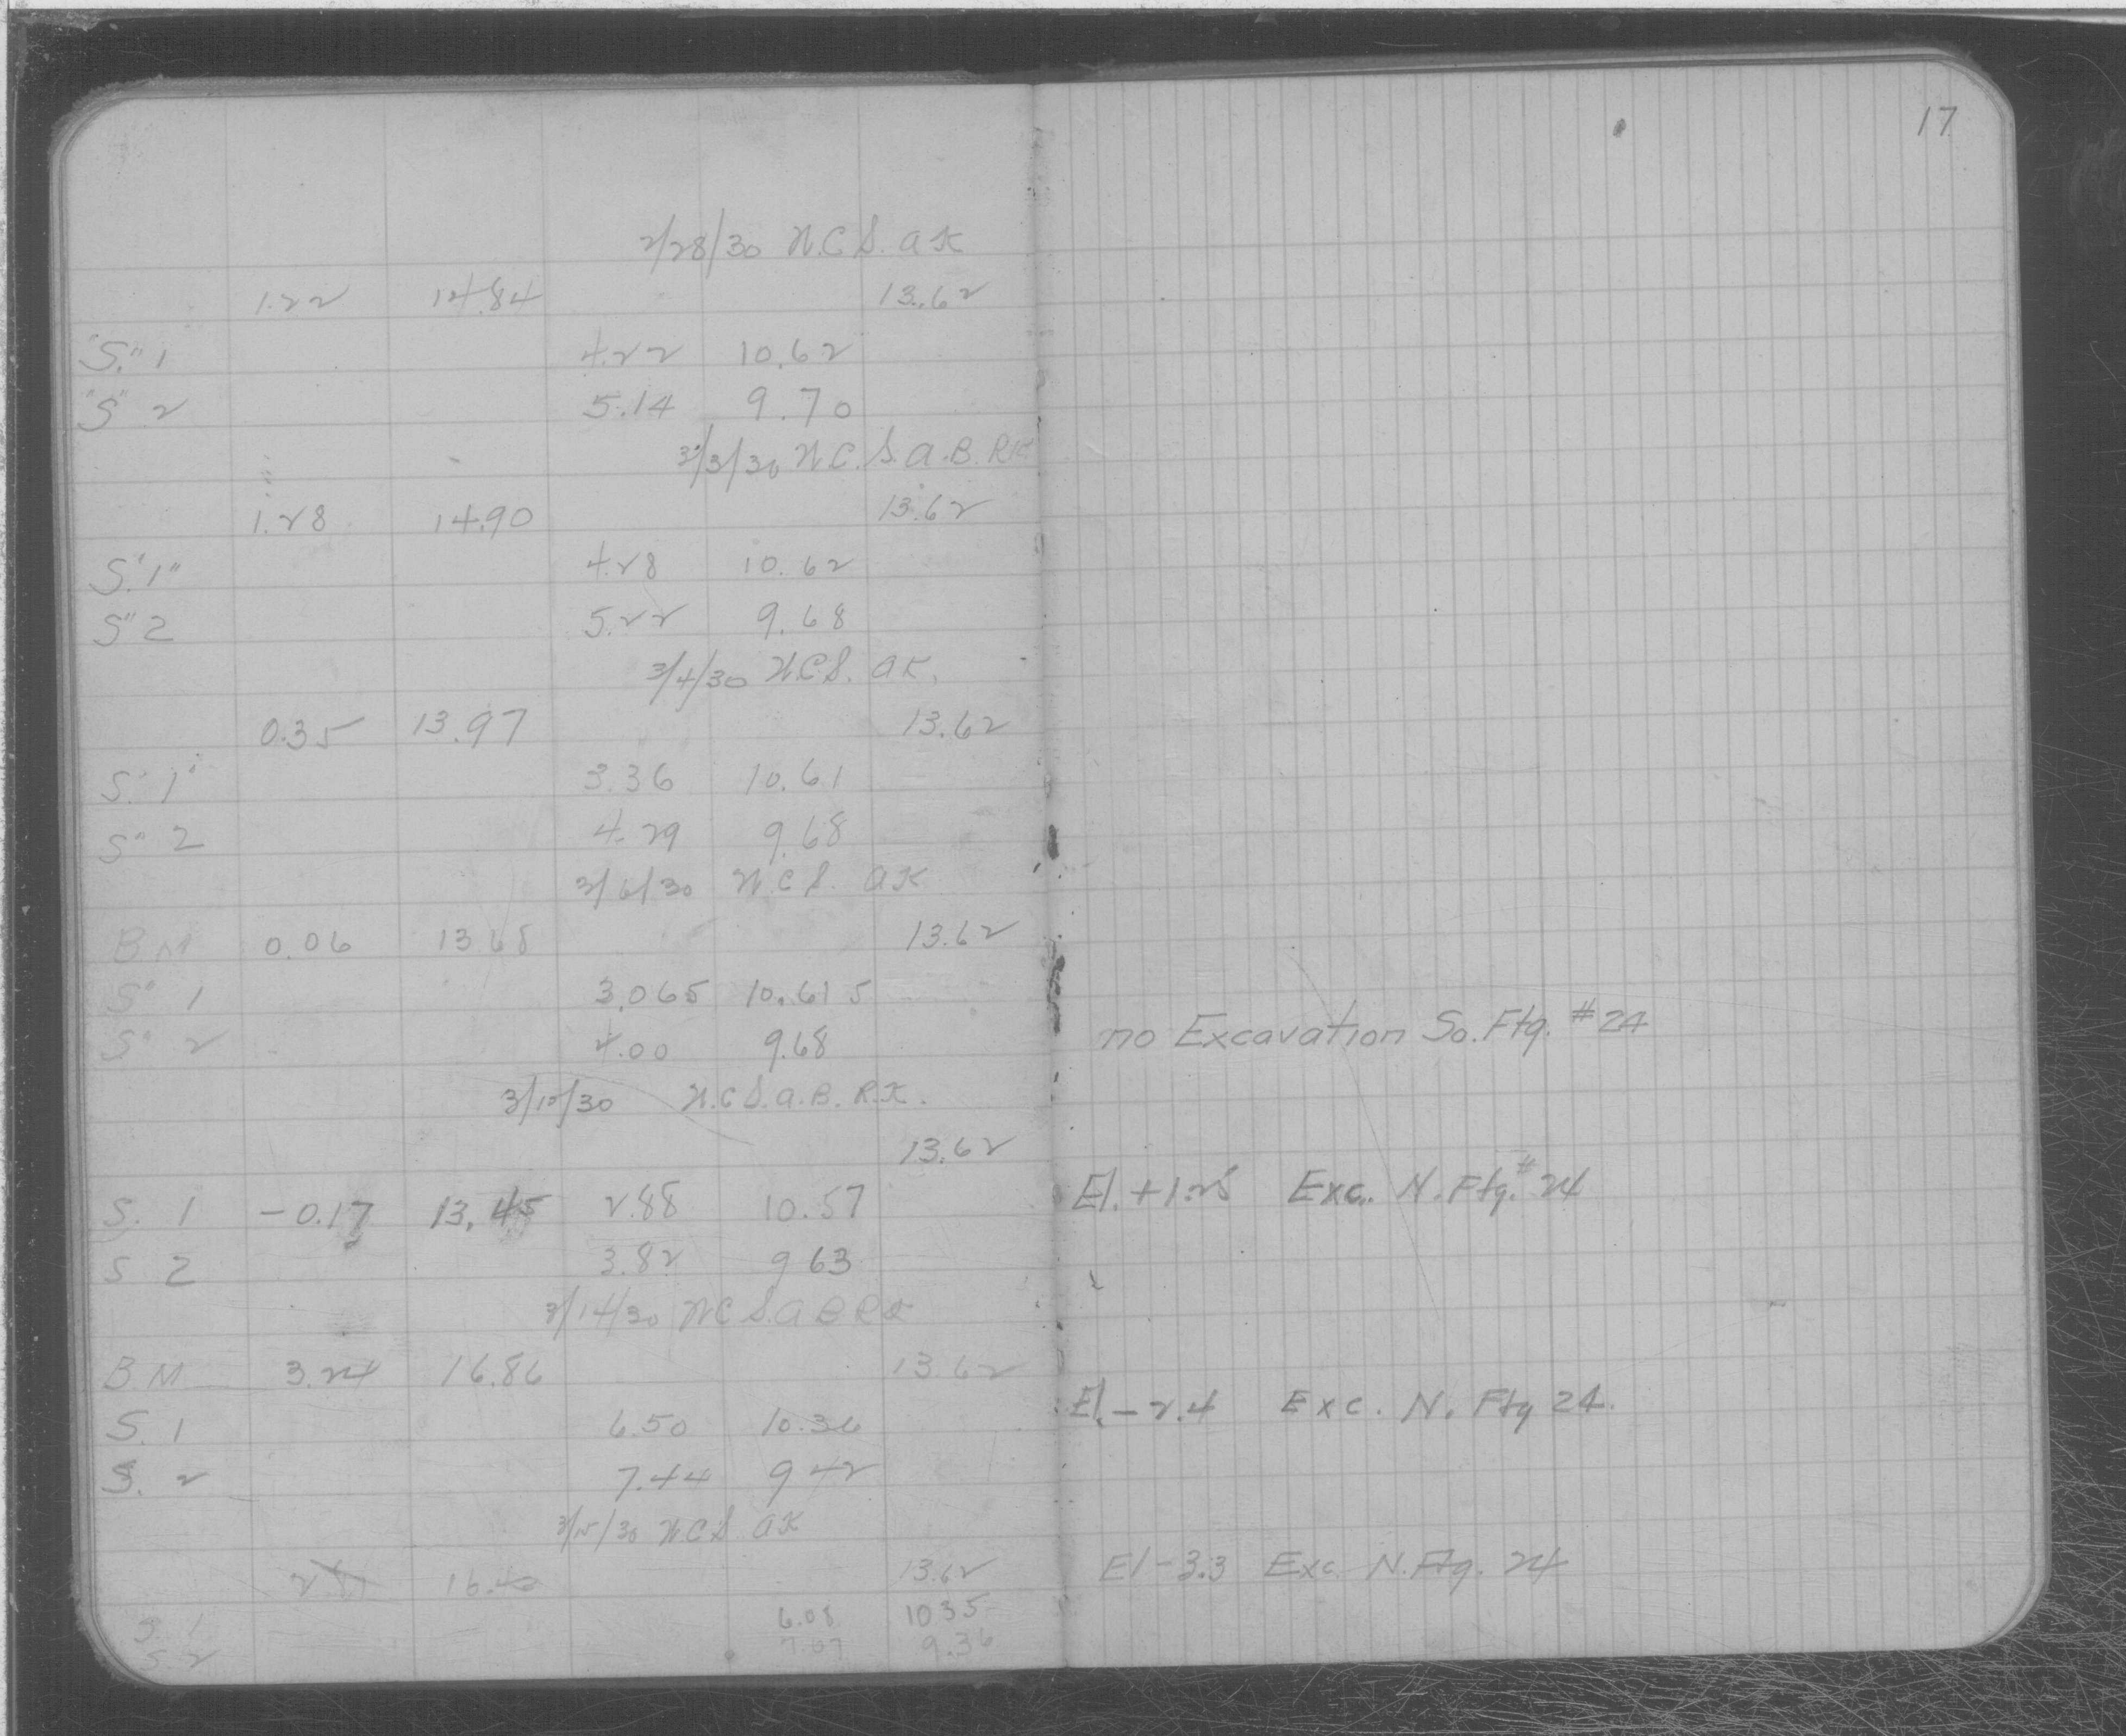 17
2/28/30 N.C.S. AK
1.22 14.84 13.62
"S." 1 4.22 10.62
"S" 2 5.14 9.70
3/3/30 N.C.S. A.B. RK
1.28 14.90 13.62
S."1" 4.28 10.62
S" 2 5.22 9.68
3/4/30 N.C.S. AK.
0.35 13.97 13.62
S." 1" 3.36 10.61
S" 2 4.29 9.68
3/6/30 N.C.S. AK
B.M 0.06 13.68 13.62
S" 1 3.065 10.615
S" 2 4.00 9.68 no Excavation So. Ftg. #24
3/10/30 N.C.S. A.B. R.K.
13.62
S. 1 -0.17 13.45 2.88 10.57 El. +1.25 Exc. N. Ftg. #24
S 2 3.82 9 63
3/14/30 N.C.S. A B R K
B.M 3.24 16.86 13.62
S. 1 6.50 10.36 El. -2.4 Exc. N. Ftg 24.
S. 2 7.44 9 42
3/15/30 N.C.S AK
13.62 El -3.3 Exc. N. Ftg. 24
S. 1 6.08 10 35
S. 2 7.07 9.36